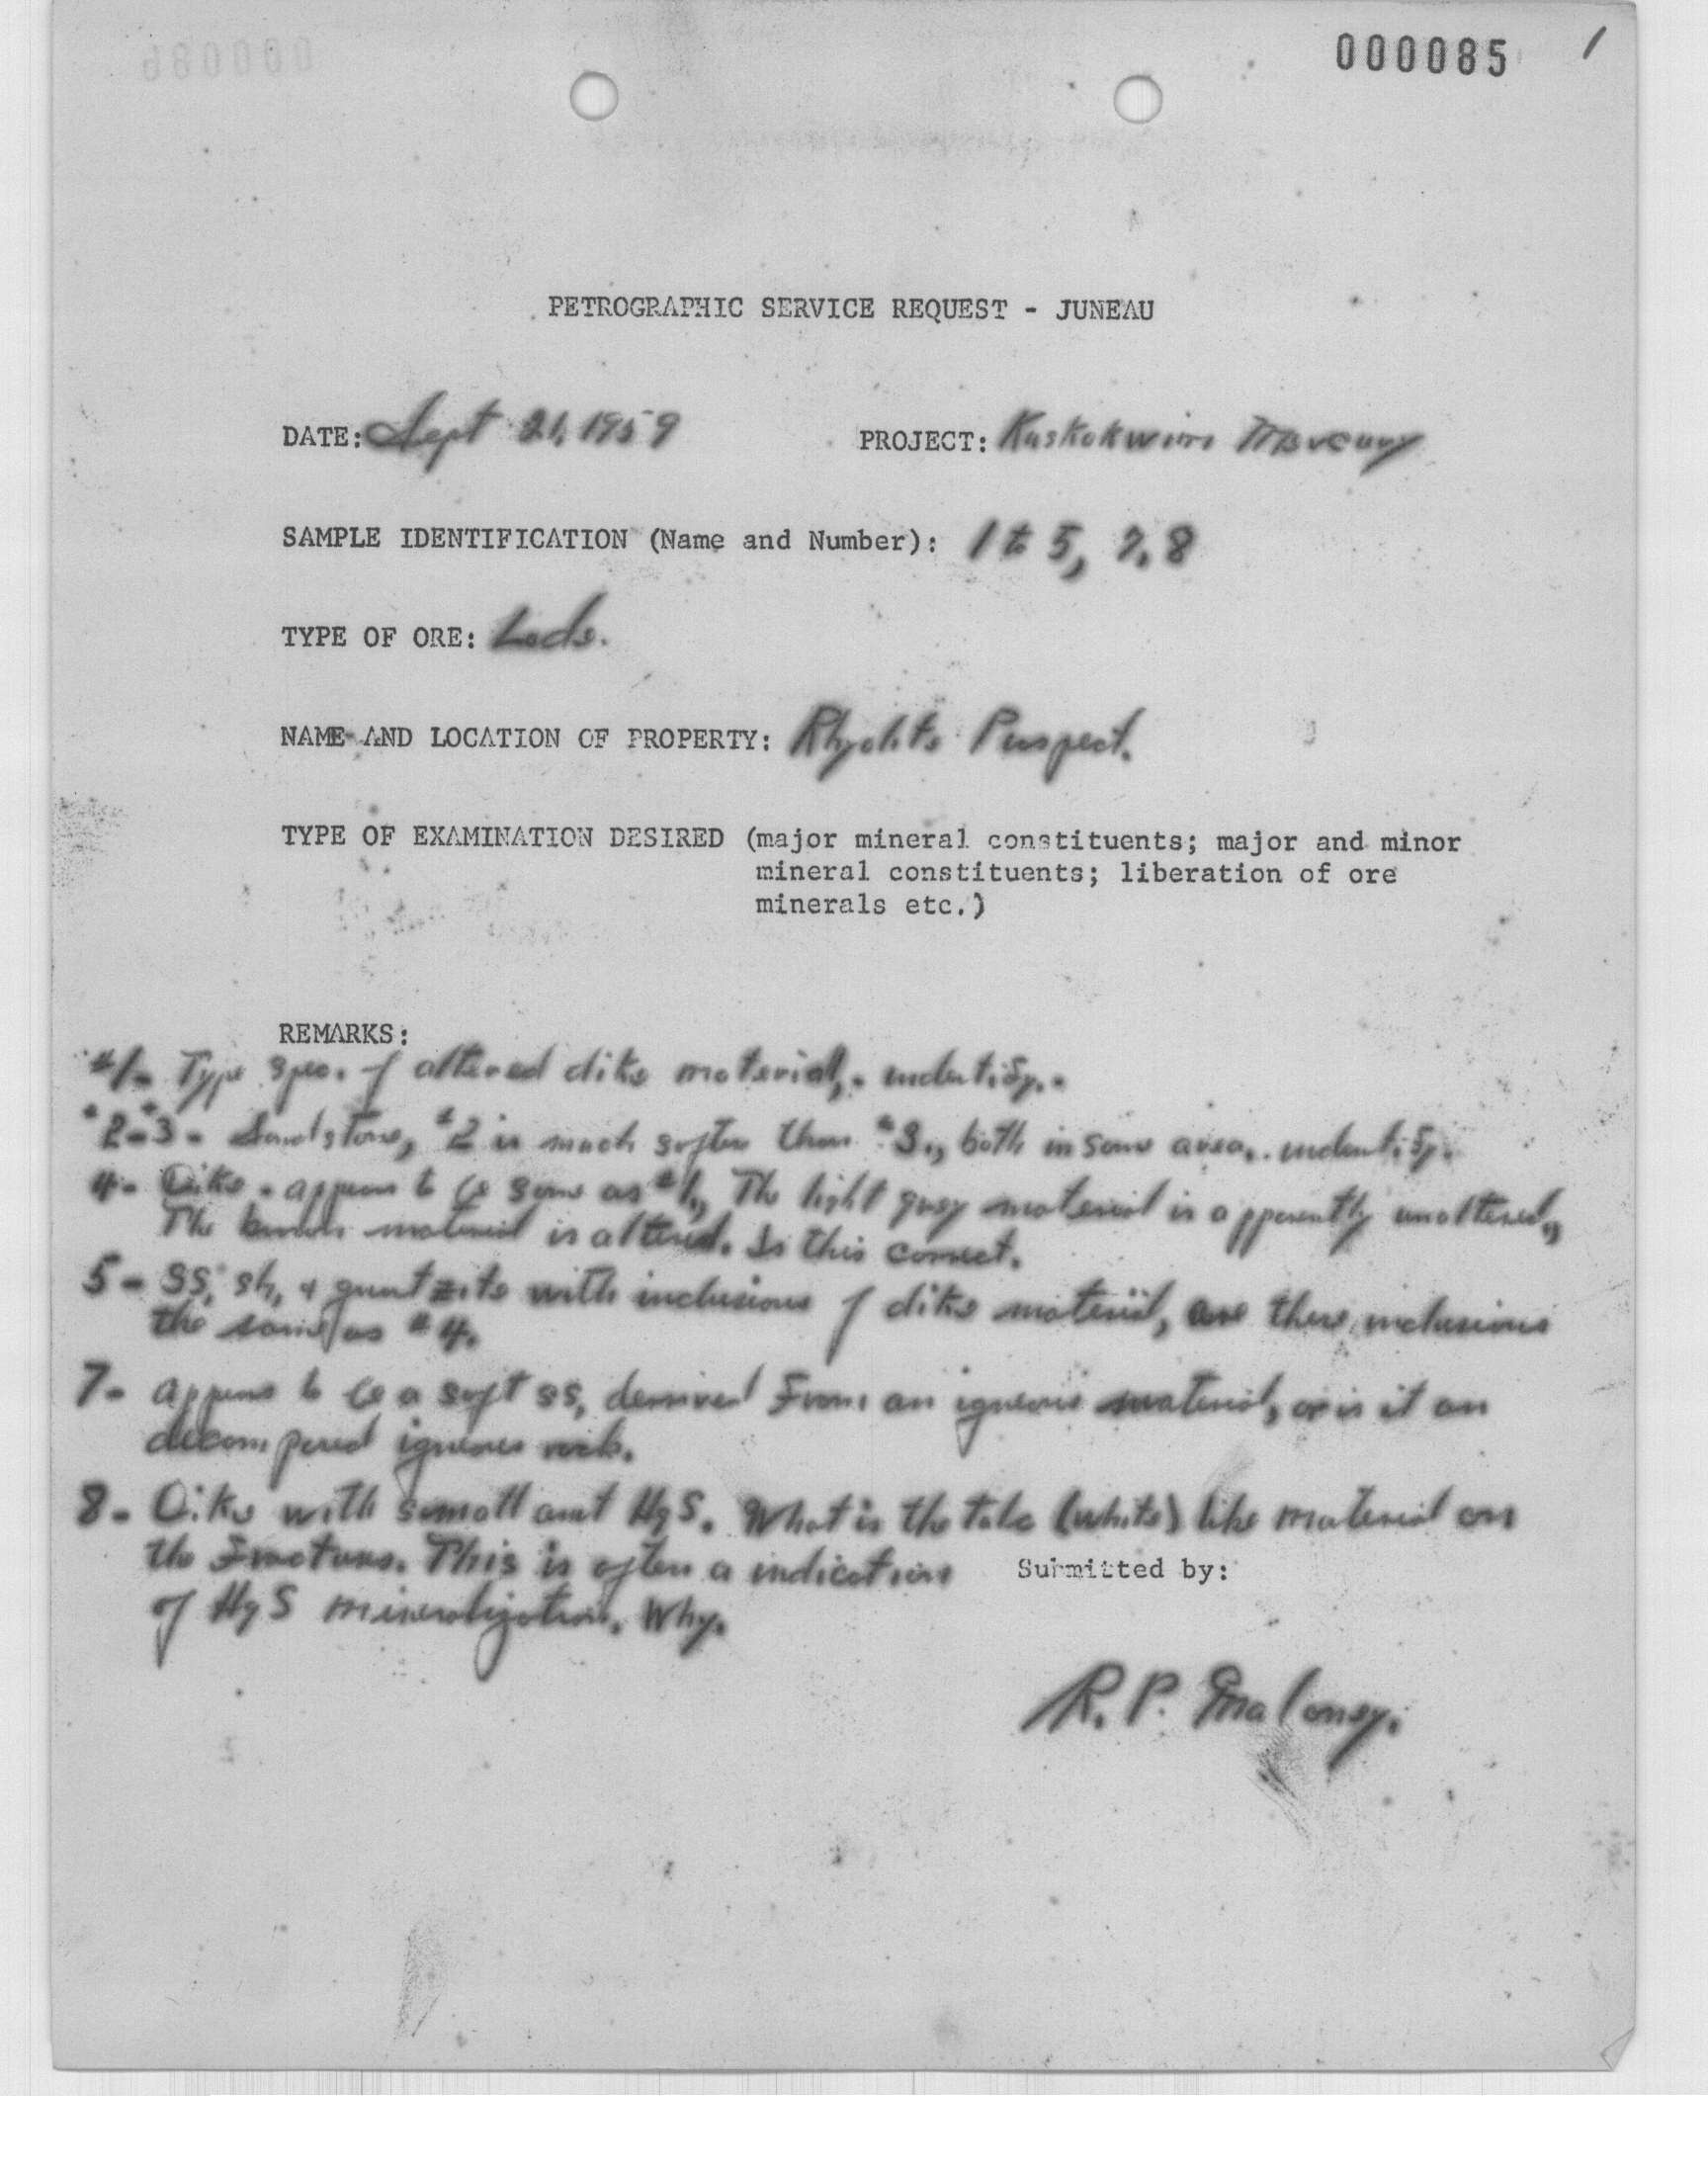 000085 /
PETROGRAPHIC SERVICE REQUEST - JUNEAU
DATE: Sept 21, 1959 PROJECT: Kuskokwim Mercury
SAMPLE IDENTIFICATION (Name and Number): 1 to 5, 7, 8
TYPE OF ORE: Lode.
NAME AND LOCATION OF PROPERTY: Rhyolite Prospect.
TYPE OF EXAMINATION DESIRED (major mineral constituents; major and minor
mineral constituents; liberation of ore
minerals etc.)
REMARKS:
#1- Type spec. of altered dike material,.
#2-#3- Sandstone, #2 is much softer than #3., both in same area,.
4- Dike - appears to be same as #1, The light gray material is apparently unaltered,
The brown material is altered. Is this correct.
5- SS, sh, & quartzite with inclusions of dike material, are these inclusions
the same as #4.
7- appears to be a soft ss, derived from an igneous material, or is it an
decomposed igneous rock.
8- Dike with small amt HgS. What is the talc (white) like material on
the fractures. This is often a indication
Submitted by:
of HgS mineralization. Why.
R. P. Maloney.